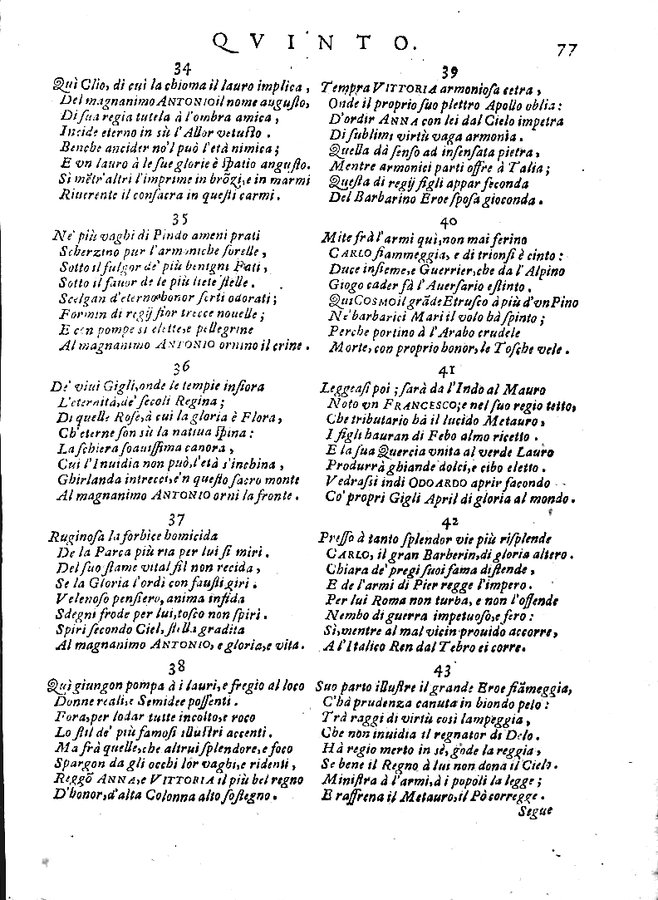 QVINTO.
77
34
Quì Clio, di cui la chioma il lauro implica,
Del magnanimo ANTONIO il nome augusto,
Di sua regia tutela à l'ombra amica,
Incide eterno in sù l'Allor vetusto.
Benche ancider no'l può l'età nimica;
E vn lauro à le sue glorie è spatio angusto.
Sì mẽtr'altri l'imprime in brõzi, e in marmi
Riuerente il consacra in questi carmi.
35
Ne' più vaghi di Pindo ameni prati
Scherzino pur l'armoniche sorelle,
Sotto il fulgor de' più benigni Fati,
Sotto il fauor de le più liete stelle.
Scelgan d'eterno honor serti odorati;
Formin di regij fior trecce nouelle;
E con pompe sì elette, e pellegrine
Al magnanimo ANTONIO ornino il crine.
36
De' viui Gigli, onde le tempie infiora
L'eternità, de' secoli Regina;
Di quelle Rose, à cui la gloria è Flora,
Ch'eterne son sù la natiua spina:
La schiera soauissima canora,
Cui l'Inuidia non può, l'età s'inchina,
Ghirlanda intrecci, e'n questo sacro monte
Al magnanimo ANTONIO orni la fronte.
37
Ruginosa la forbice homicida
De la Parca più ria per lui si miri.
Del suo stame vital fil non recida,
Se la Gloria l'ordì con fausti giri.
Velenoso pensiero, anima infida
Sdegni frode per lui, tosco non spiri.
Spiri secondo Ciel, stella gradita
Al magnanimo ANTONIO, e gloria, e vita.
38
Quì giungon pompa à i lauri, e fregio al loco
Donne reali, e Semidee possenti.
Fora, per lodar tutte incolto, e roco
Lo stil de' più famosi illustri accenti.
Ma frà quelle, che altrui splendore, e foco
Spargon da gli occhi lor vaghi, e ridenti,
Reggõ ANNA, e VITTORIA il più bel regno
D'honor, d'alta Colonna alto sostegno.
39
Tempra VITTORIA armoniosa cetra,
Onde il proprio suo plettro Apollo oblia:
D'ordir ANNA con lei dal Cielo impetra
Di sublimi virtù vaga armonia.
Quella dà senso ad insensata pietra,
Mentre armonici parti offre à Talia;
Questa di regij figli appar feconda
Del Barbarino Eroe sposa gioconda.
40
Mite frà l'armi quì, non mai ferino
CARLO fiammeggia, e di trionfi è cinto:
Duce insieme, e Guerrier, che da l'Alpino
Giogo cader fà l'Auersario estinto.
Quì COSMO il grãde Etrusco à più d'vn Pino
Ne' barbarici Mari il volo hà spinto;
Perche portino à l'Arabo crudele
Morte, con proprio honor, le Tosche vele.
41
Leggeasi poi; sarà da l'Indo al Mauro
Noto vn FRANCESCO; e nel suo regio tetto,
Che tributario hà il lucido Metauro,
I figli hauran di Febo almo ricetto.
E la sua Quercia vnita al verde Lauro
Produrrà ghiande dolci, e cibo eletto.
Vedrassi indi ODOARDO aprir facondo
Co' propri Gigli April di gloria al mondo.
42
Presso à tanto splendor vie più risplende
CARLO, il gran Barberin, di gloria altero.
Chiara de' pregi suoi fama distende,
E de l'armi di Pier regge l'impero.
Per lui Roma non turba, e non l'offende
Nembo di guerra impetuoso, e fero:
Sì, mentre al mal vicin prouido accorre,
A l'Italico Ren dal Tebro ei corre.
43
Suo parto illustre il grande Eroe fiãmeggia,
C'hà prudenza canuta in biondo pelo:
Trà raggi di virtù così lampeggia,
Che non inuidia il regnator di Delo.
Hà regio merto in sè, gode la reggia,
Se bene il Regno à lui non dona il Cielo.
Ministra à l'armi, à i popoli la legge;
E raffrena il Metauro, il Pò corregge.
Segue